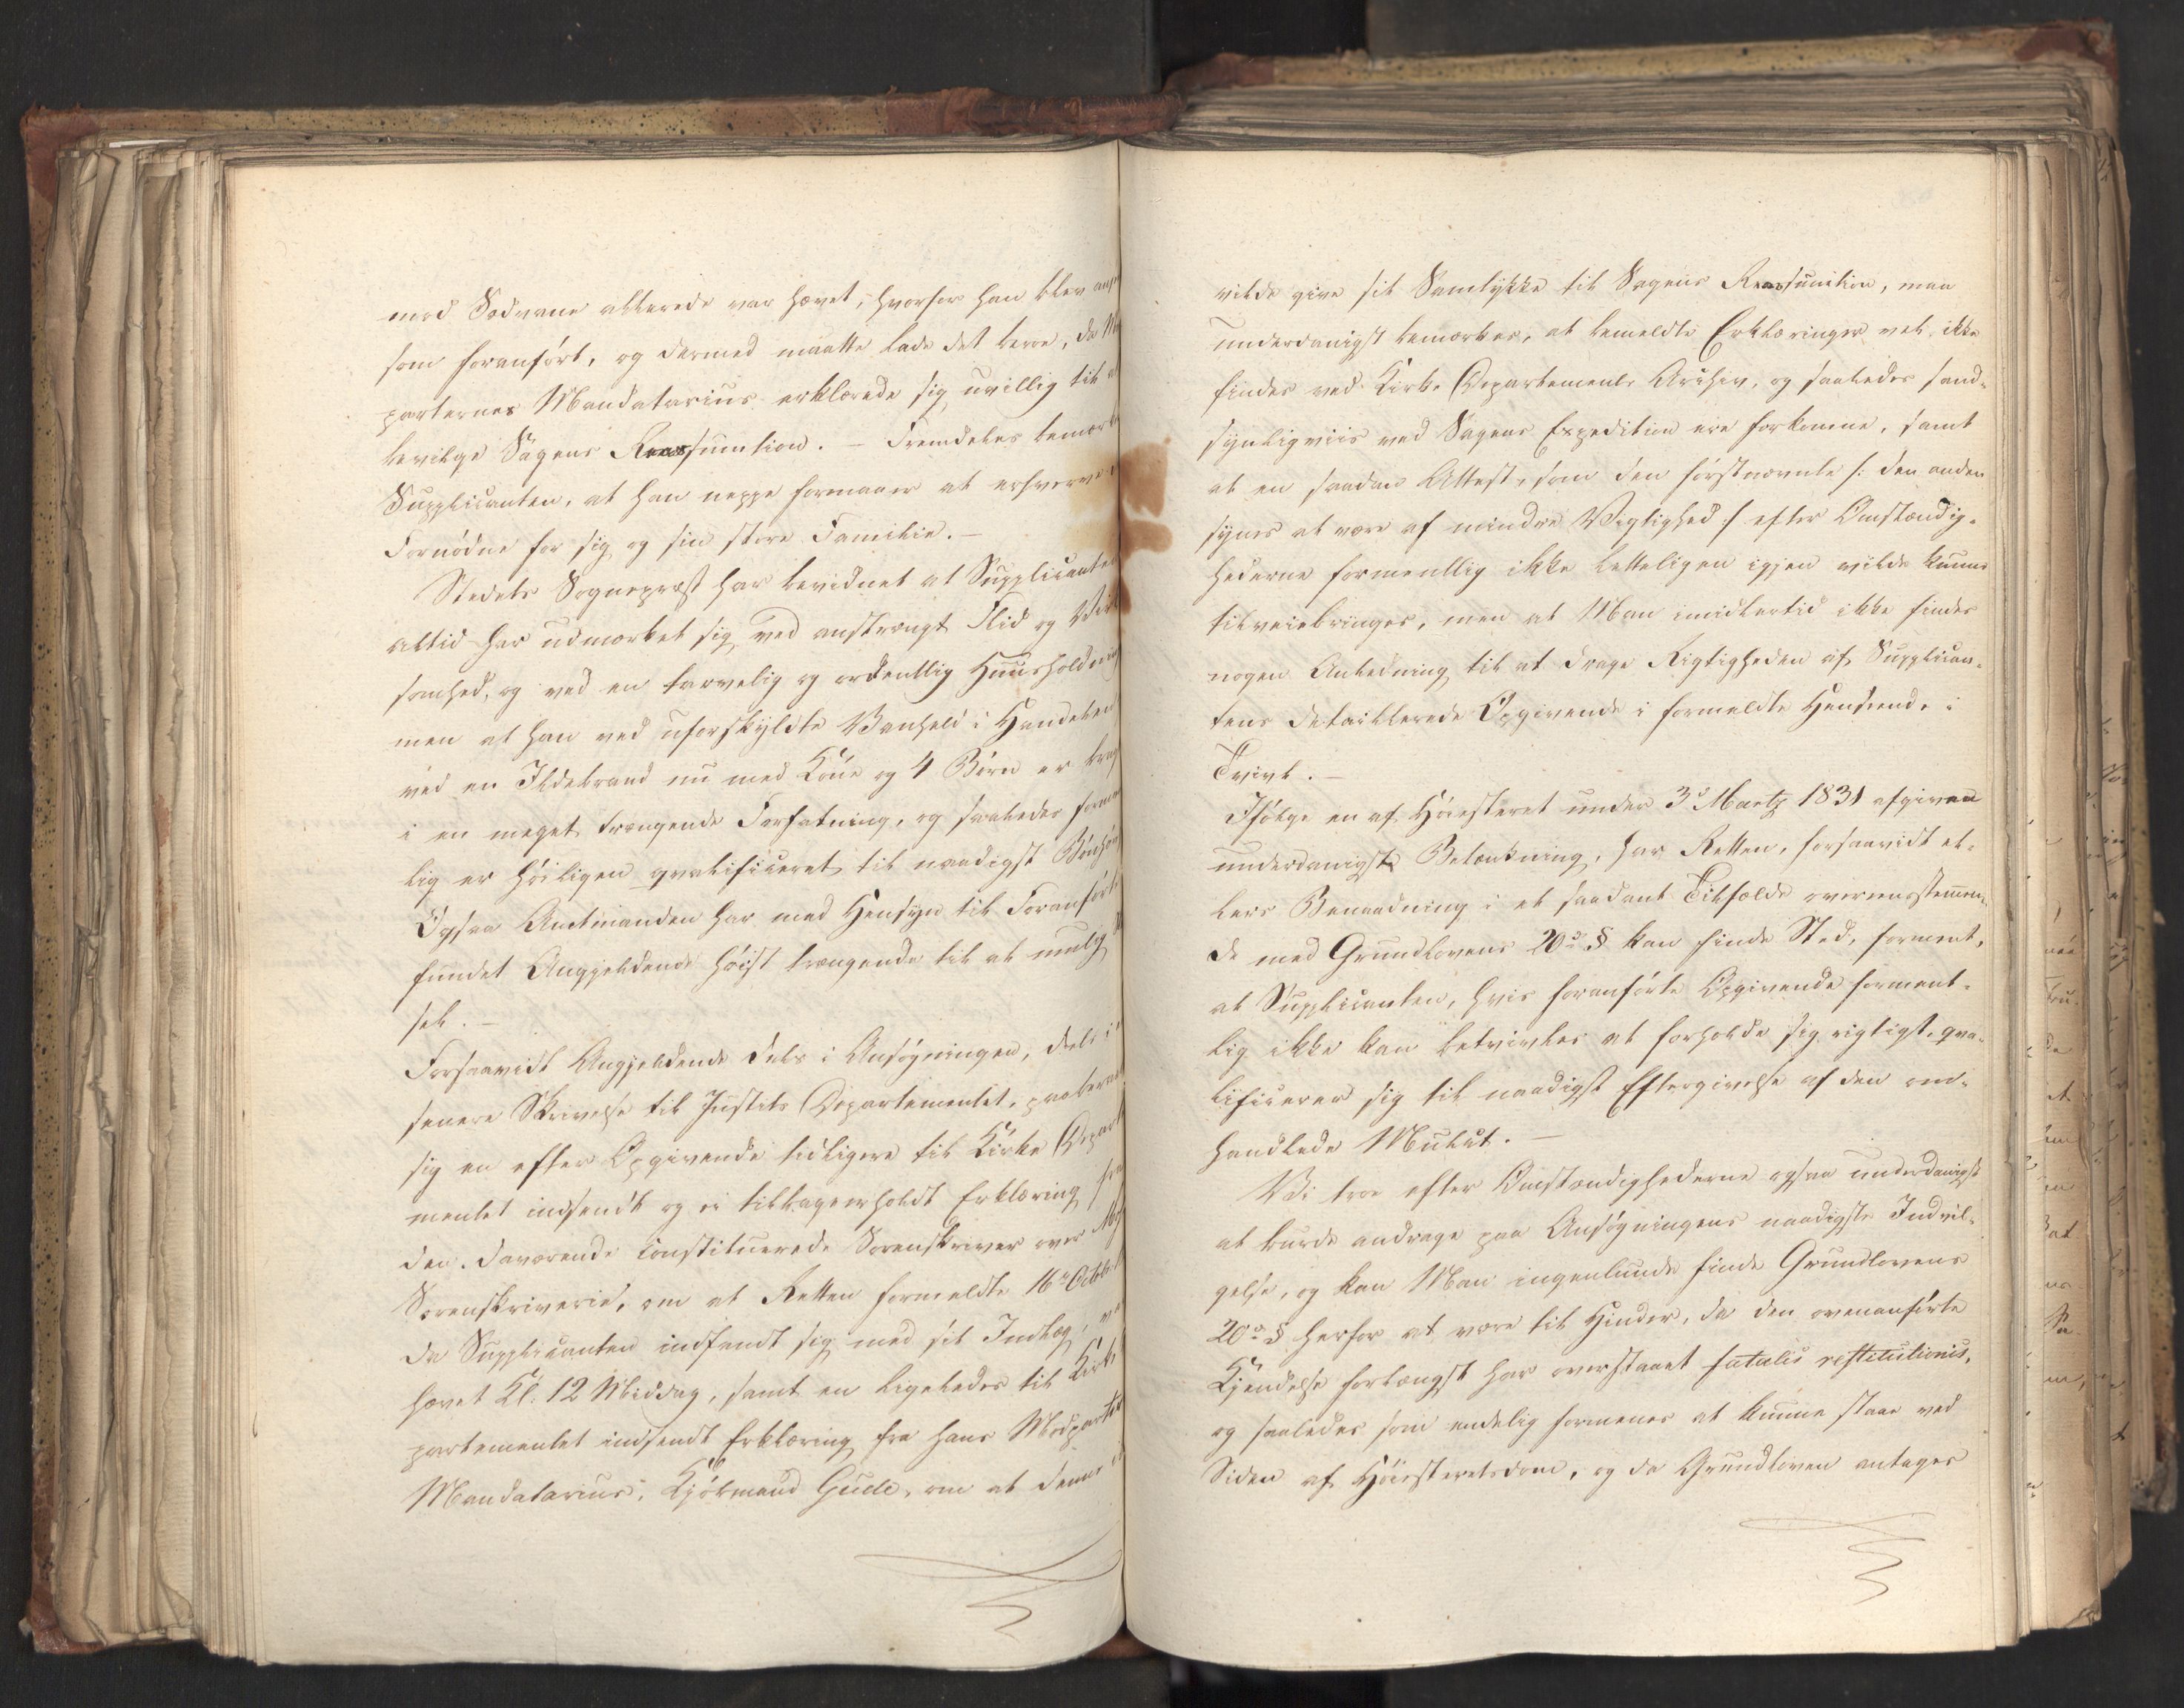 mod Sædvane allerede var hævet, hvorfor han blev
som foranført, og dermed maatte lade det beroe, da
parternes Mandatarius erklærede sig uvillig til
bevilge Sagens Reassumtion. – Fremdeles bemærker
Supplicanten, at han neppe formaaer at erhverve
Fornødne for sig og sin store Familie. –
Stedets Sognepræst har bevidnet at Supplicanten
altid har udmærket sig ved anstrængt Flid og
somhed, og ved en tarvelig og ordentlig Huusholdning
men at han ved uforskyldte Vanheld i Handelen
ved en Ildebrand nu med Kone og 4 Børn er
i en meget trængende Forfatning, og saaledes
lig er høiligen qvalificeret til naadigst Bønhør
Ogsaa Amtmanden har med Hensyn til Foranførte
fundet Angjeldende høist trængende til at
sel. –
Forsaavidt Angjeldende deels i Ansøgningen, deels i
senere Skrivelse til Justits Departementet, paaberaab
sig en efter Opgivende tidligere til Kirke Departe
mentet indsendt og ei tilbageerholdt Erklæring fra
den daværende constituerede Sorenskriver over
Sorenskriverie, om at Retten formeldte 16de Octbr
da Supplicanten indfandt sig med sit Indlæg,
hævet Kl: 12 Middag, samt en ligeledes til Kirke
partementet indsendt Erklæring fra hans Modparters
Mandatarius, Kjøbmand Gude, om at denne
vilde give sit Samtykke til Sagens Reassumtion, maa
underdanigst bemærkes, at bemeldte Erklæringer vel ikke
findes ved Kirke Departements Archiv, og saaledes sand-
synligviis ved Sagens Expedition ere forkomne, samt
at en saadan Attest, som den førstnævnte /: den anden
synes at være af mindre Vigtighed :/ efter Omstændig-
hederne formentlig ikke letteligen igjen vilde kunne
tilveiebringes, men at Man imidlertid ikke finder
nogen Anledning til at drage Rigtigheden af Supplican-
tens detaillerede Opgivende i formeldte Henseende i
Tvivl. –
Ifølge en af Høiesteret under 3d Martz 1831 afgiven
underdanigst Betænkning, har Retten, forsaavidt el-
lers Benaadning i et saadant Tilfælde overeensstemmen-
de med Grundlovens 20de § kan finde Sted, forment,
at Supplicanten, hvis foranførte Opgivende forment-
lig ikke kan betvivles at forholde sig rigtigt, qva-
lificerer sig til naadigst Eftergivelse af den om-
handlede Mulct. –
Vi troe efter Omstændighederne ogsaa underdanigst
at burde andrage paa Ansøgningens naadigste Indvil-
gelse, og kan Man ingenlunde finde Grundlovens
20de § herfor at være til Hinder, da den ovenanførte
Kjendelse forlængst har overstaaet fatalis restitutionis,
og saaledes som endelig formenes at kunne staae ved
Siden af Høiesteretsdom, og da Grundloven antages